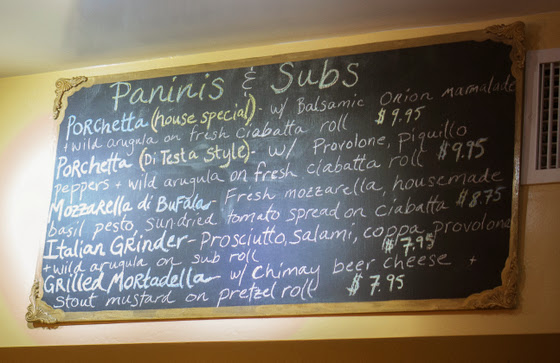 Paninis & Subs
Porchetta (house special) - w/ Balsamic Orion Marmalade
+ wild arugula on fresh Ciabatta roll $9.95
Porchetta (Di Testa Style) - w/ Provolone, Piquillo
peppers + wild arugula on fresh ciabatta roll $9.95
Mozzarella di Bufala - Fresh mozzarella, housemade
basil pesto, sun-dried tomato spread on ciabatta $8.75
Italian Grinder - Prosciutto, Salami, coppa, provolone
+ wild arugula on sub roll $7.95
Grilled Mortadella - w/ Chimay beer cheese +
stout mustard on pretzel roll $7.95